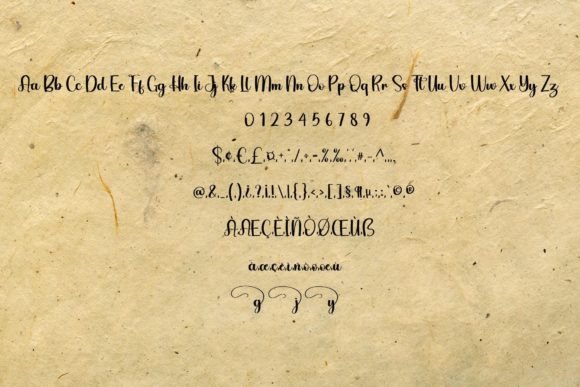 Aa Bb Cc Dd Ee Ff Gg Hh Ii Jj Kk Ll Mm Nn Oo Pp Qq Rr Ss Tt Uu Vv Ww Xx Yy Zz
0 1 2 3 4 5 6 7 8 9
$,¢,€,£,¤,+,*,/,÷,=,%,‰,",',#,-,^,...,
@,&,_,(,),¿,?,¡,!,\,|,{,},<,>,[,],§,¶,µ,:,;,`,©,®
ÀÆÇÈÌÑÒØŒÙß
à,æ,ç,è,ì,ñ,ò,ø,œ,ù
g j y